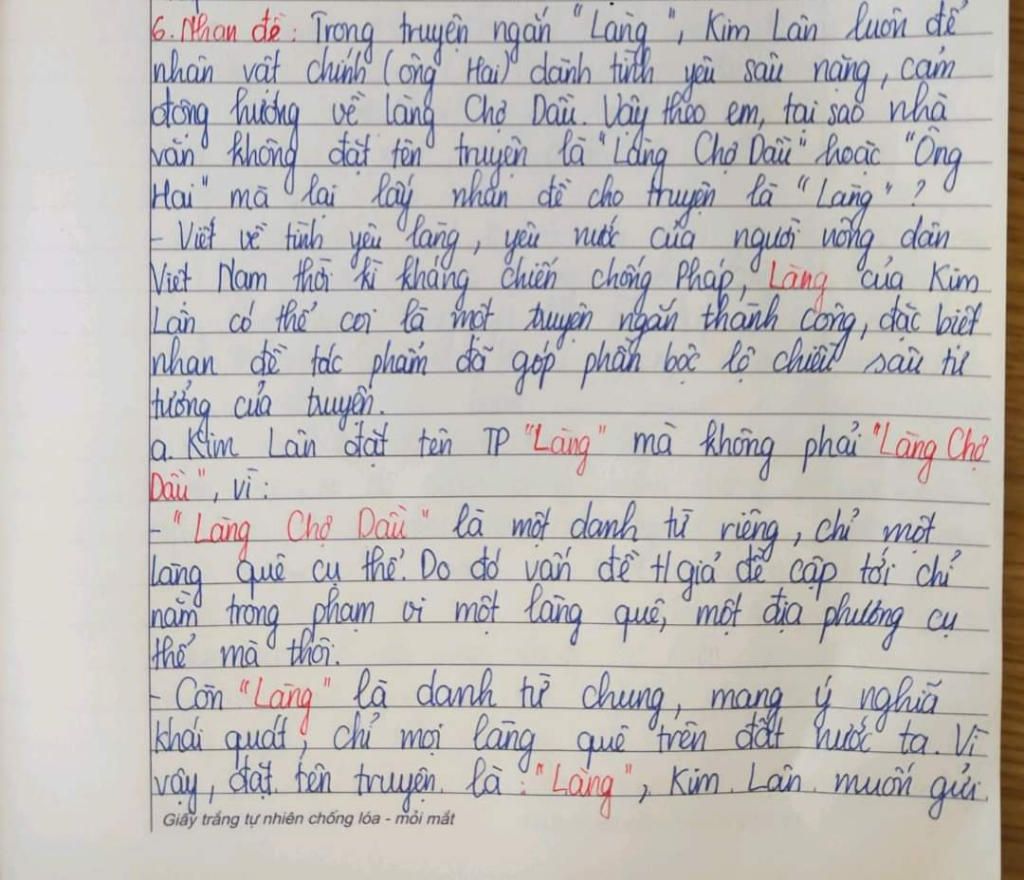 6. Nhan đề: Trong truyện ngắn "Làng", Kim Lân luôn để
nhân vật chính (ông Hai) dành tình yêu sâu nặng, cảm
động hướng về làng Chợ Dầu. Vậy theo em, tại sao nhà
văn không đặt tên truyện là "Làng Chợ Dầu" hoặc "Ông
Hai" mà lại lấy nhan đề cho truyện là "Làng"?
- Viết về tình yêu làng, yêu nước của người nông dân
Việt Nam thời kì kháng chiến chống Pháp, Làng của Kim
Lân có thể coi là một truyện ngắn thành công, đặc biệt
nhan đề tác phẩm đã góp phần bộc lộ chiều sâu tư
tưởng của truyện.
a. Kim Lân đặt tên TP "Làng" mà không phải "Làng Chợ
Dầu", vì:
- "Làng Chợ Dầu" là một danh từ riêng, chỉ một
làng quê cụ thể. Do đó vấn đề t/giả đề cập tới chỉ
nằm trong phạm vi một làng quê, một địa phương cụ
thể mà thôi.
- Còn "Làng" là danh từ chung, mang ý nghĩa
khái quát, chỉ mọi làng quê trên đất nước ta. Vì
vậy, đặt tên truyện là: "Làng", Kim Lân muốn gửi
Giấy trắng tự nhiên chống lóa - mỏi mắt